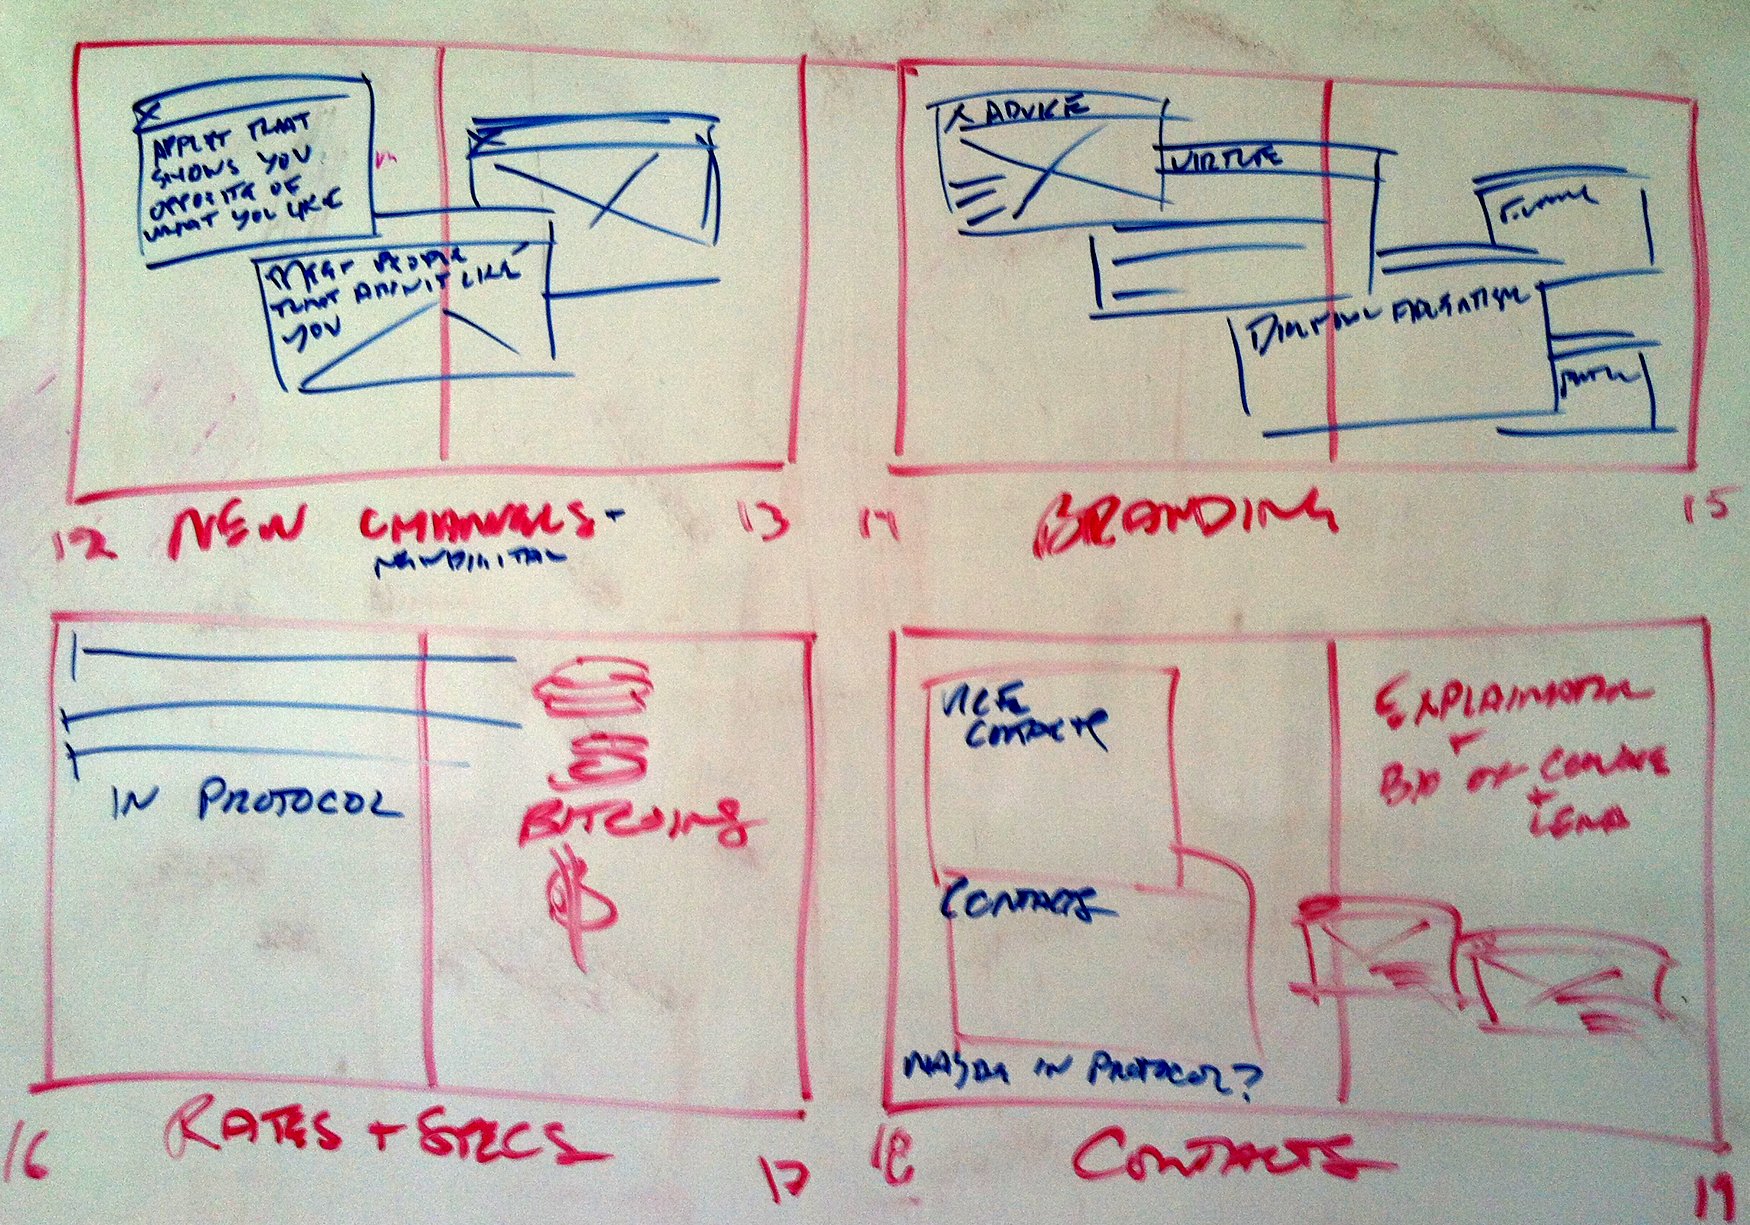 APPLET THAT
SHOWS YOU
OPPOSITE OF
WHAT YOU LIKE
MEET PEOPLE
THAT AREN'T LIKE
YOU
12 NEW CHANNELS + 13
NEW DIGITAL
X ADVICE
VIRTUE
14 BRANDING 15
IN PROTOCOL
BITCOINS
16 RATES + SPECS 17
VICE
CONTACTS
CONTACTS
MAYBE IN PROTOCOL?
EXPLAINATION
+
BIO OF
+
LENA
18 CONTACTS 19